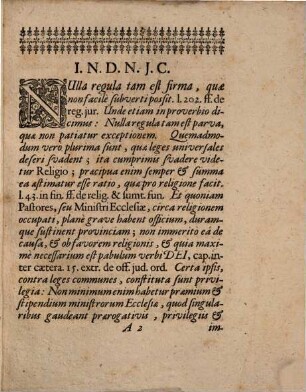 I. N. D. N. J. C.
NUlla regula tam est firma, quæ
non facile subverti possit. l. 202. ff. de
reg. jur. Unde etiam in proverbio di-
cimus: Nulla regula tam est parva,
qua non patiatur exceptionem. Quemadmo-
dum vero plurima sunt, qua leges universales
deseri svadent; ita cumprimis svadere vide-
tur Religio; præcipua enim semper & summa
ea æstimatur esse ratio, qua pro religione facit.
l. 43. in fin. ff. de relig. & sumt. fun. Et quoniam
Pastores, seu Ministri Ecclesiæ, circa religionem
occupati, plane grave habent officium, duram-
que sustinent provinciam; non immerito eâ de
causa, & ob favorem religionis, & quia maxi-
mè necessarium est pabulum verbi DEI, cap. in-
ter cætera. 15. extr. de off. jud. ord. Certa ipsis,
contra leges communes, constituta sunt privi-
legia: Non minimum enim habetur præmium &
stipendium ministrorum Ecclesiæ, quod singula-
ribus gaudeant prærogativis, privilegiis &
A 2 im-